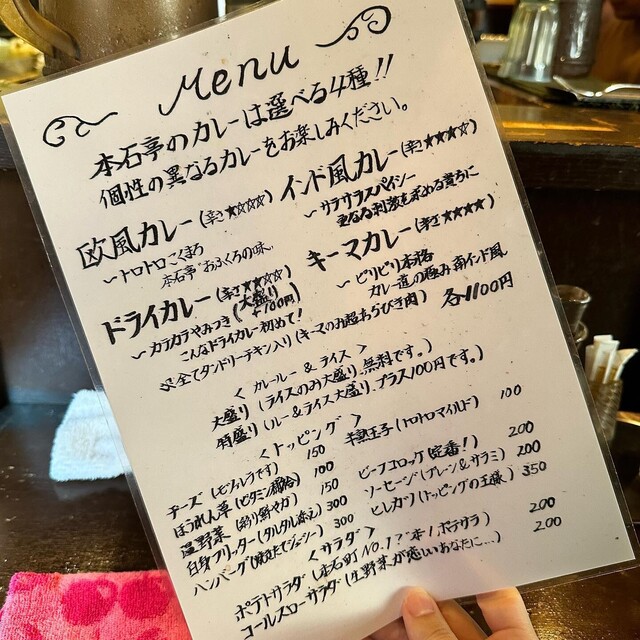 Menu
本石亭のカレーは選べる4種!!
個性の異なるカレーをお楽しみください。
欧風カレー(辛さ★☆☆☆)
〜トロトロごくまろ
本石亭"おふくろの味"
インド風カレー(辛さ★★★☆)
〜サラサラスパイシー
更なる刺激を求める貴方に
ドライカレー(辛さ★★☆☆)
(大盛り+100円)
〜カラカラやみつき
こんなドライカレー初めて!
キーマカレー(辛さ★★★★)
〜ビリビリ本格
カレー道の極み南インド風
※全てタンドリーチキン入り(キーマのみ粗あらびき肉) 各1100円
<カレールー&ライス>
大盛り(ライスのみ大盛り、無料です。)
特盛り(ルー&ライス大盛り、プラス100円です。)
<トッピング>
チーズ(モッツァレラです) 150
ほうれん草(ビタミン補給) 100
温野菜(彩り鮮やか) 150
白身フリッター(タルタル添え) 300
ハンバーグ(焼きたてジューシー) 300
半熟玉子(トロトロマイルド) 100
ビーフコロッケ(定番!) 200
ソーセージ(プレーン&サラミ) 200
ヒレカツ(トッピングの王様) 350
<サラダ>
ポテトサラダ(本石町NO.1?"本1"ポテサラ) 200
コールスローサラダ(生野菜が恋しいあなたに…) 200